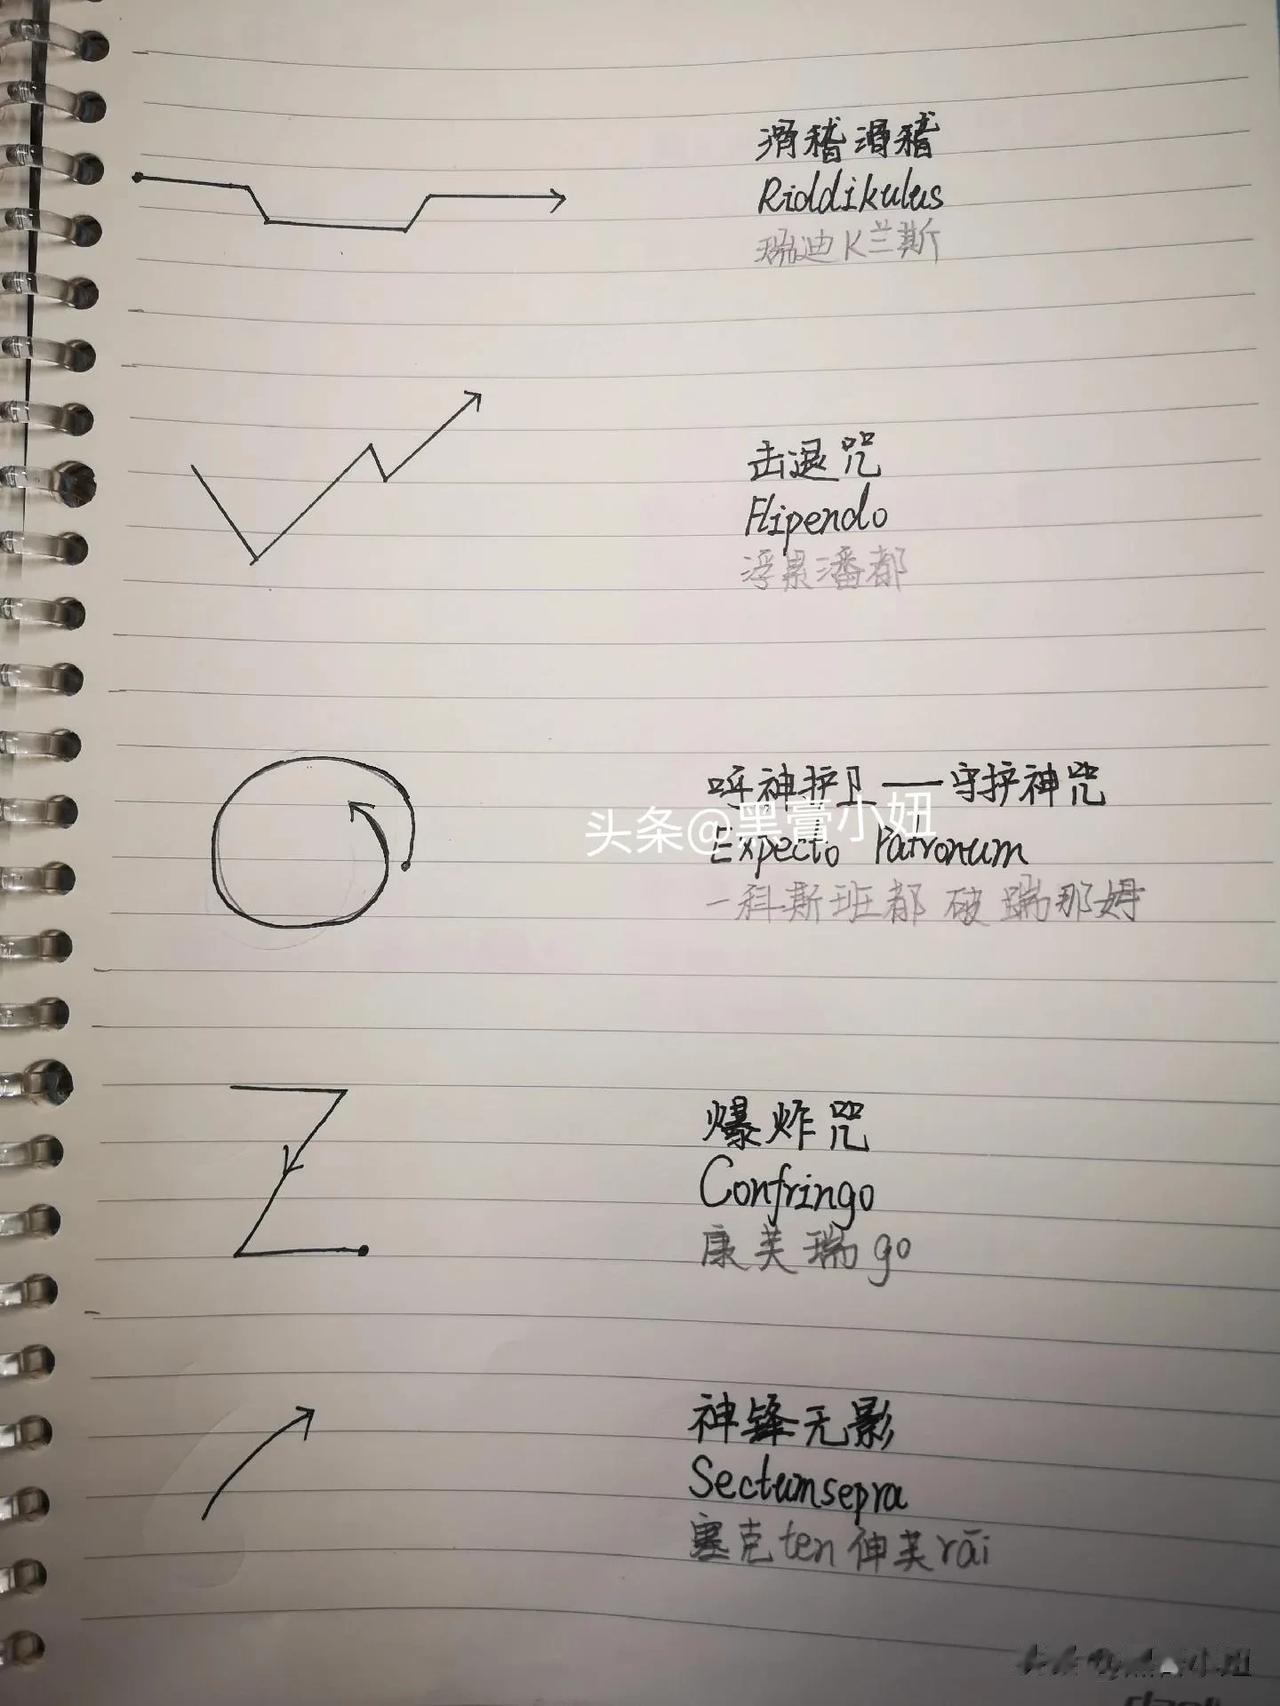 滑稽滑稽
Riddikulus
瑞迪K兰斯
击退咒
Flipendo
浮累潘都
呼神护卫——守护神咒
头条@黑膏小妞
Expecto Patronum
一科斯班都 破瑞那姆
爆炸咒
Confringo
康芙瑞go
神锋无影
Sectumsepra
塞克ten伸芙rāi